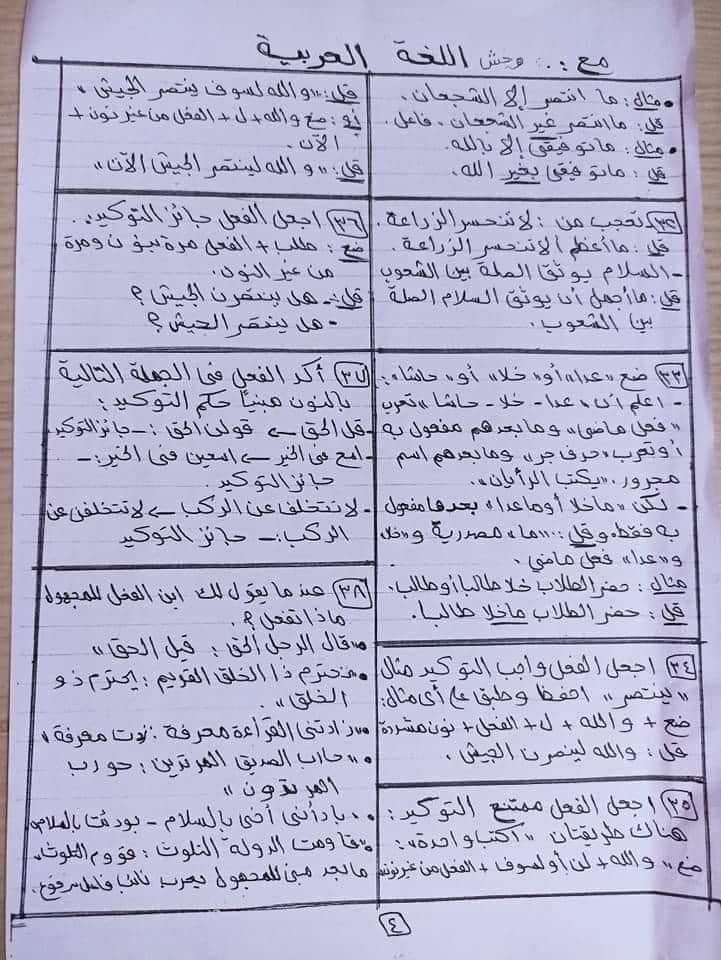 مع :. وحش اللغة العربية
• مثال: ما انتصر إلا الشجعان.
قل: ما انتصر غير الشجعان. فاعل.
• مثال: ما توفيقى إلا بالله.
قل: ما توفيقى بغير الله.
٣٢ تعجب من: لا تنحسر الزراعة.
قل: ما أعظم ألا تنحسر الزراعة.
- السلام يوثق الصلة بين الشعوب
قل: ما أجمل أن يوثق السلام الصلة
بين الشعوب.
٣٣ ضع «عدا» أو «خلا» أو «حاشا»:
- اعلم أن «عدا - خلا - حاشا» تعرب
«فعل ماضى» وما بعدهم مفعول به
أو تعرب «حرف جر» وما بعدهم اسم
مجرور. «يكتب الرأيان».
- لكن «ما خلا أو ما عدا» بعدها مفعول
به فقط. وقل: «ما» مصدرية و«خلا»
و«عدا» فعل ماضى.
مثال: حضر الطلاب خلا طالبا أو طالب.
قل: حضر الطلاب ما خلا طالبا.
٣٤ اجعل الفعل واجب التوكيد مثال
«ينتصر» احفظ وطبق على أى مثال:
ضع + والله + ل + الفعل + نون مشددة
قل: والله لينصرن الجيش.
٣٥ اجعل الفعل ممتنع التوكيد:
هناك طريقتان «اكتب واحدة»:
ضع «والله + لن أو لسوف + الفعل من غير نون»
قل: «والله لسوف ينتصر الجيش»
أو: ضع والله + ل + الفعل من غير نون +
الآن.
قل: «والله لينتصر الجيش الآن»
٣٦ اجعل الفعل جائز التوكيد:
ضع: طلب + الفعل مرة بنون ومرة
من غير النون.
قل: - هل ينتصرن الجيش؟
- هل ينتصر الجيش؟
٣٧ أكد الفعل فى الجملة التالية
بالنون مبيناً حكم التوكيد:
- قل الحق ← قولن الحق: - جائز التوكيد
- اسع فى الخير ← اسعين فى الخير: -
جائز التوكيد
- لا تتخلف عن الركب ← لا تتخلفن عن
الركب: - جائز التوكيد
٣٨ عندما يقول لك ابن الفعل للمجهول
ماذا تفعل؟
• «قال الرجل الحق: قيل الحق»
• نحترم ذا الخلق القويم: يحترم ذو
الخلق».
• «زادتنى القراءة معرفة: زدت معرفة»
• «حارب الصديق المرتدين: حورب
المرتدون»
• بادأنى أخى بالسلام - بودئت بالسلام
• «قاومت الدولة التلوث: قووم التلوث»
ما نجد مبنى للمجهول يعرب نائب فاعل مرفوع.
٤